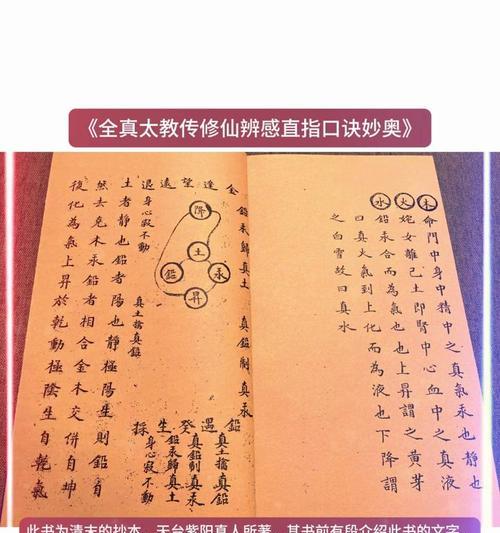 《全真太教传修仙辨感直指口诀妙奥》
木火水
命門中身中精中之真氣汞也靜也
姹女離己土即腎中心血中之真液
鉛汞合而為氣也上昇謂之黃芽
曰真火氣到上化而為液也下降謂
之白雪故曰真水
金逢望遠退
鉛汞歸真土 真鉛制真汞
身心寂不動
降
土
鉛
汞
昇
真土擒真鉛
鉛遇癸生採
真土擒真鉛
真鉛制真汞
鉛汞歸真土
身心寂不動
土者靜也鉛者陽也靜極陽生則鉛自
然去尅木汞鉛者相合金木交併自坤
後化為氣上昇於乾動極陰生自乾氣
此书为清末的抄本，天台紫阳真人所著，其书前有段介绍此书的文字